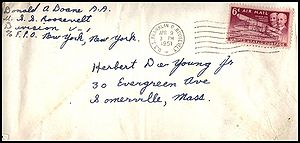 Donald A Doane D.D.
U.S.S. Roosevelt
Division
℅ F.P.O. New York, New York.
U.S.S. FRANKLIN D. ROOSEVELT
APR
9
PM
1951
6¢ AIR MAIL
Herbert De Young Jr
30 Evergreen Ave
Somerville, Mass.